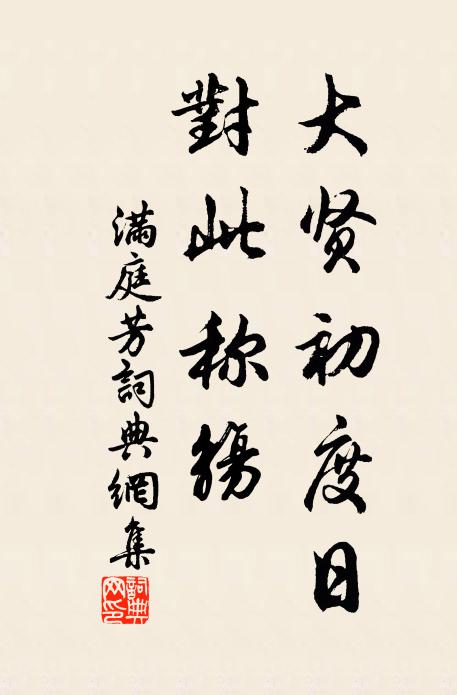 大贤初度日
對此称觴
滿庭芳詞典網集
詞典网印